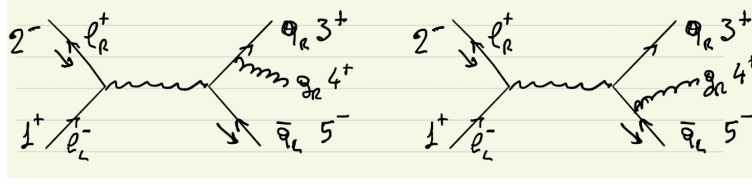 2⁻ ℓ_R⁺ q_R 3⁺
g_R 4⁺
1⁺ ℓ_L⁻ q̄_L 5⁻
2⁻ ℓ_R⁺ q_R 3⁺
g_R 4⁺
1⁺ ℓ_L⁻ q̄_L 5⁻